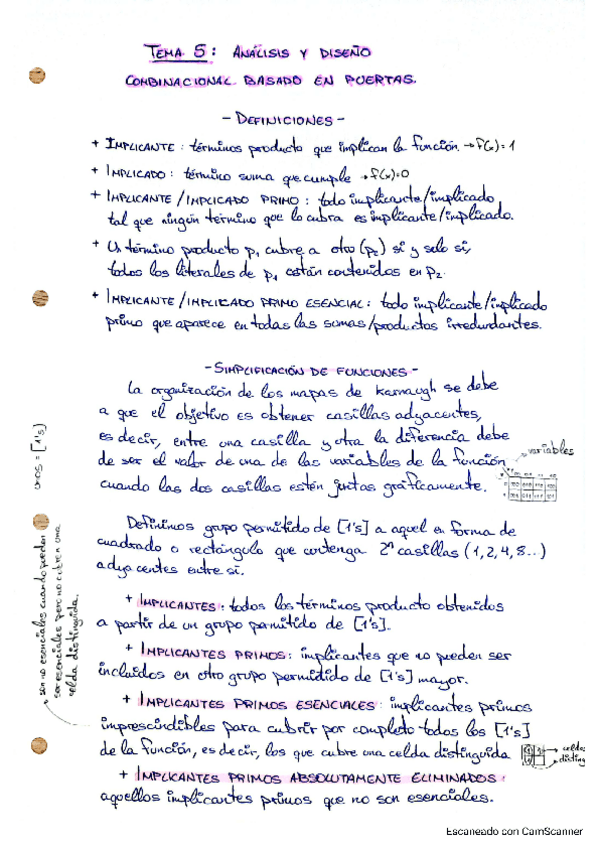 TEMA 5: ANÁLISIS Y DISEÑO
COMBINACIONAL BASADO EN PUERTAS.
- DEFINICIONES -
+ IMPLICANTE: términos producto que implican la función. → f(x)=1
+ IMPLICADO: término suma que cumple → f(x)=0
+ IMPLICANTE/IMPLICADO PRIMO: todo implicante/implicado
tal que ningún término que lo cubra es implicante/implicado.
+ Un término producto p₁ cubre a otro (p₂) si y solo si,
todos los literales de p₁ están contenidos en p₂.
+ IMPLICANTE/IMPLICADO PRIMO ESENCIAL: todo implicante/implicado
primo que aparece en todas las sumas/productos irredundantes.
- SIMPLIFICACIÓN DE FUNCIONES -
La organización de los mapas de Karnaugh se debe
a que el objetivo es obtener casillas adyacentes,
es decir, entre una casilla y otra la diferencia debe
de ser el valor de una de las variables de la función
cuando las dos casillas estén juntas gráficamente.
variables
unos = [1's]
Definimos grupo permitido de [1's] a aquel en forma de
cuadrado o rectángulo que contenga 2ⁿ casillas (1,2,4,8...)
adyacentes entre sí.
+ IMPLICANTES: todos los términos producto obtenidos
a partir de un grupo permitido de [1's].
+ IMPLICANTES PRIMOS: implicantes que no pueden ser
incluidos en otro grupo permitido de [1's] mayor.
+ IMPLICANTES PRIMOS ESENCIALES: implicantes primos
imprescindibles para cubrir por completo todos los [1's]
de la función, es decir, los que cubre una celda distinguida
→ celda
→ disting
+ IMPLICANTES PRIMOS ABSOLUTAMENTE ELIMINADOS:
aquellos implicantes primos que no son esenciales.
son no esenciales cuando pueden
ser esenciales pero no cubren una
celda distinguida.
Escaneado con CamScanner